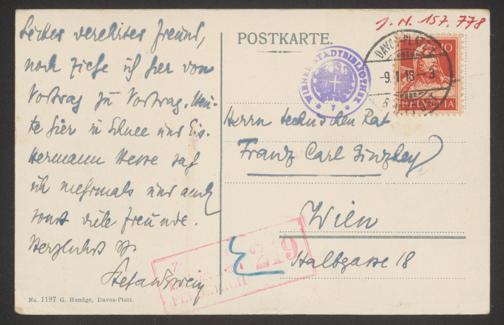 J. N. 157.778
POSTKARTE.
DAVOS-PLATZ
HELVETIA
WIENER STADTBIBLIOTHEK
Lieber verehrter Freund,
noch ziehe ich hier von
Vortrag zu Vortrag. Heute
hier in Schnee und Eis.
Hermann Hesse sah
ich mehrmals und auch
sonst viele Freunde.
Herzlichst Ihr
Stefan Zweig
Herrn technischen Rat
Franz Carl Ginzkey
Wien
Halbgasse 18
219
No. 1197 G. Hamäge, Davos-Platz.